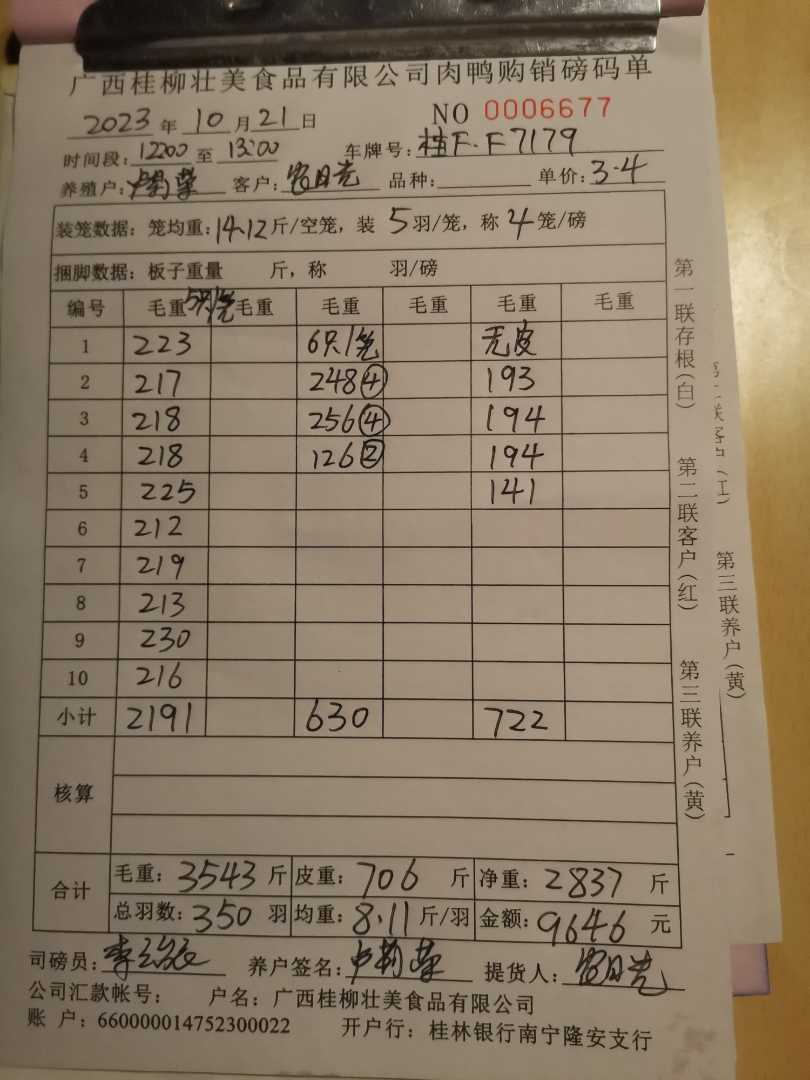 广西桂柳壮美食品有限公司肉鸭购销磅码单
2023年10月21日 NO 0006677
时间段:12:00至13:00 车牌号:桂F·F7179
养殖户: 客户: 品种: 单价:3.4
装笼数据:笼均重:14.12斤/空笼,装5羽/笼,称4笼/磅
捆脚数据:板子重量 斤,称 羽/磅
编号 毛重 5只/笼 毛重 毛重 毛重 毛重 毛重
1 223 6只/笼 无皮
2 217 248④ 193
3 218 256④ 194
4 218 126② 194
5 225 141
6 212
7 219
8 213
9 230
10 216
小计 2191 630 722
核算
合计 毛重:3543斤 皮重:706斤 净重:2837斤
总羽数:350羽 均重:8.11斤/羽 金额:9646元
司磅员: 养户签名: 提货人:
公司汇款帐号: 户名:广西桂柳壮美食品有限公司
账户:660000014752300022 开户行:桂林银行南宁隆安支行
第一联存根(白) 第二联客户(红) 第三联养户(黄)
第三联养户(黄)